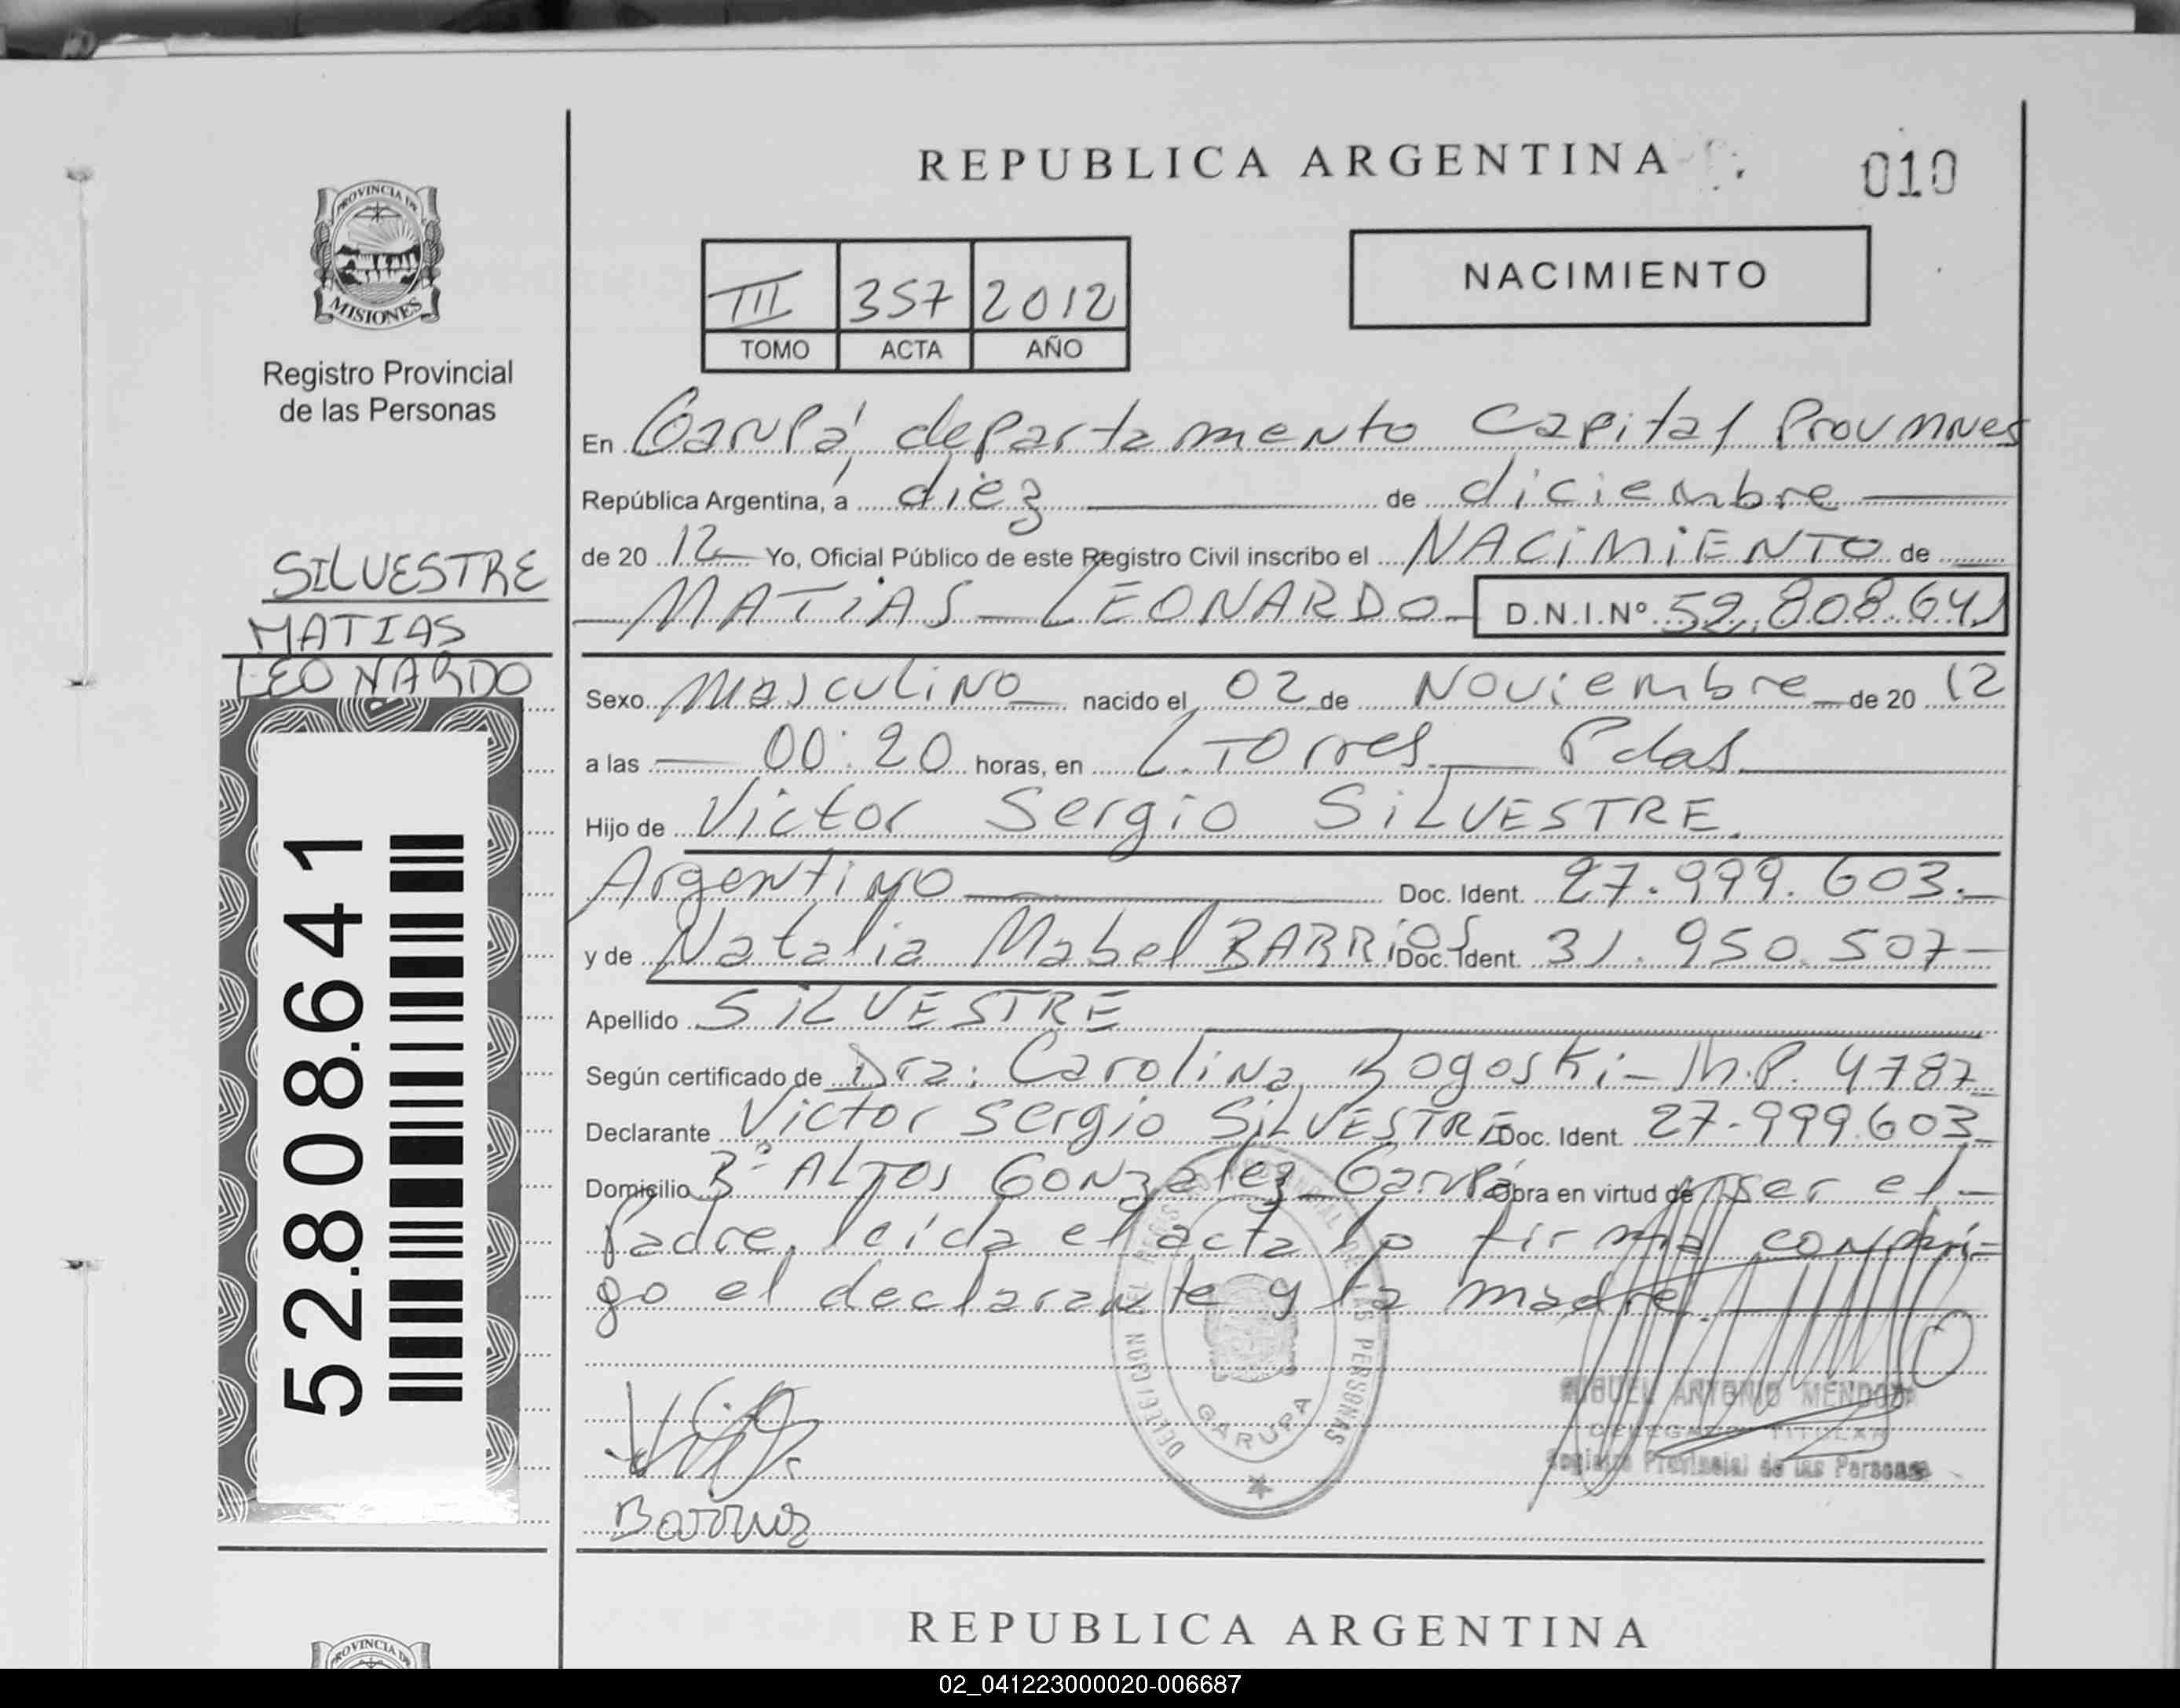 REPUBLICA ARGENTINA
010
PROVINCIA DE
MISIONES
Registro Provincial
de las Personas
III 357 2012
TOMO ACTA AÑO
NACIMIENTO
En Garupá, departamento Capital Prov Mnes
República Argentina, a diez de diciembre
de 20 12 Yo, Oficial Público de este Registro Civil inscribo el NACIMIENTO de
MATIAS LEONARDO D.N.I.Nº 52.808.641
SILVESTRE
MATIAS
LEONARDO
52.808.641
Sexo Masculino nacido el 02 de Noviembre de 20 12
a las 00:20 horas, en L. Torres Pdas
Hijo de Victor Sergio SILVESTRE.
Argentino Doc. Ident. 27.999.603.-
y de Natalia Mabel BARRIOS Doc. Ident. 31.950.507-
Apellido SILVESTRE
Según certificado de Dra: Carolina Bogoski - M.P. 4787
Declarante Victor Sergio SILVESTRE Doc. Ident. 27.999.603
Domicilio Bº ALTOS Gonzalez Garupá Obra en virtud de ser el
Padre, leída el acta lo firma conmi-
go el declarante y la madre.
DELEGACION DEL REGISTRO PROVINCIAL DE LAS PERSONAS
GARUPA
MIGUEL ANTONIO MENDOZA
DELEGADO TITULAR
Registro Provincial de las Personas
Barrios
REPUBLICA ARGENTINA
PROVINCIA DE
02_041223000020-006687